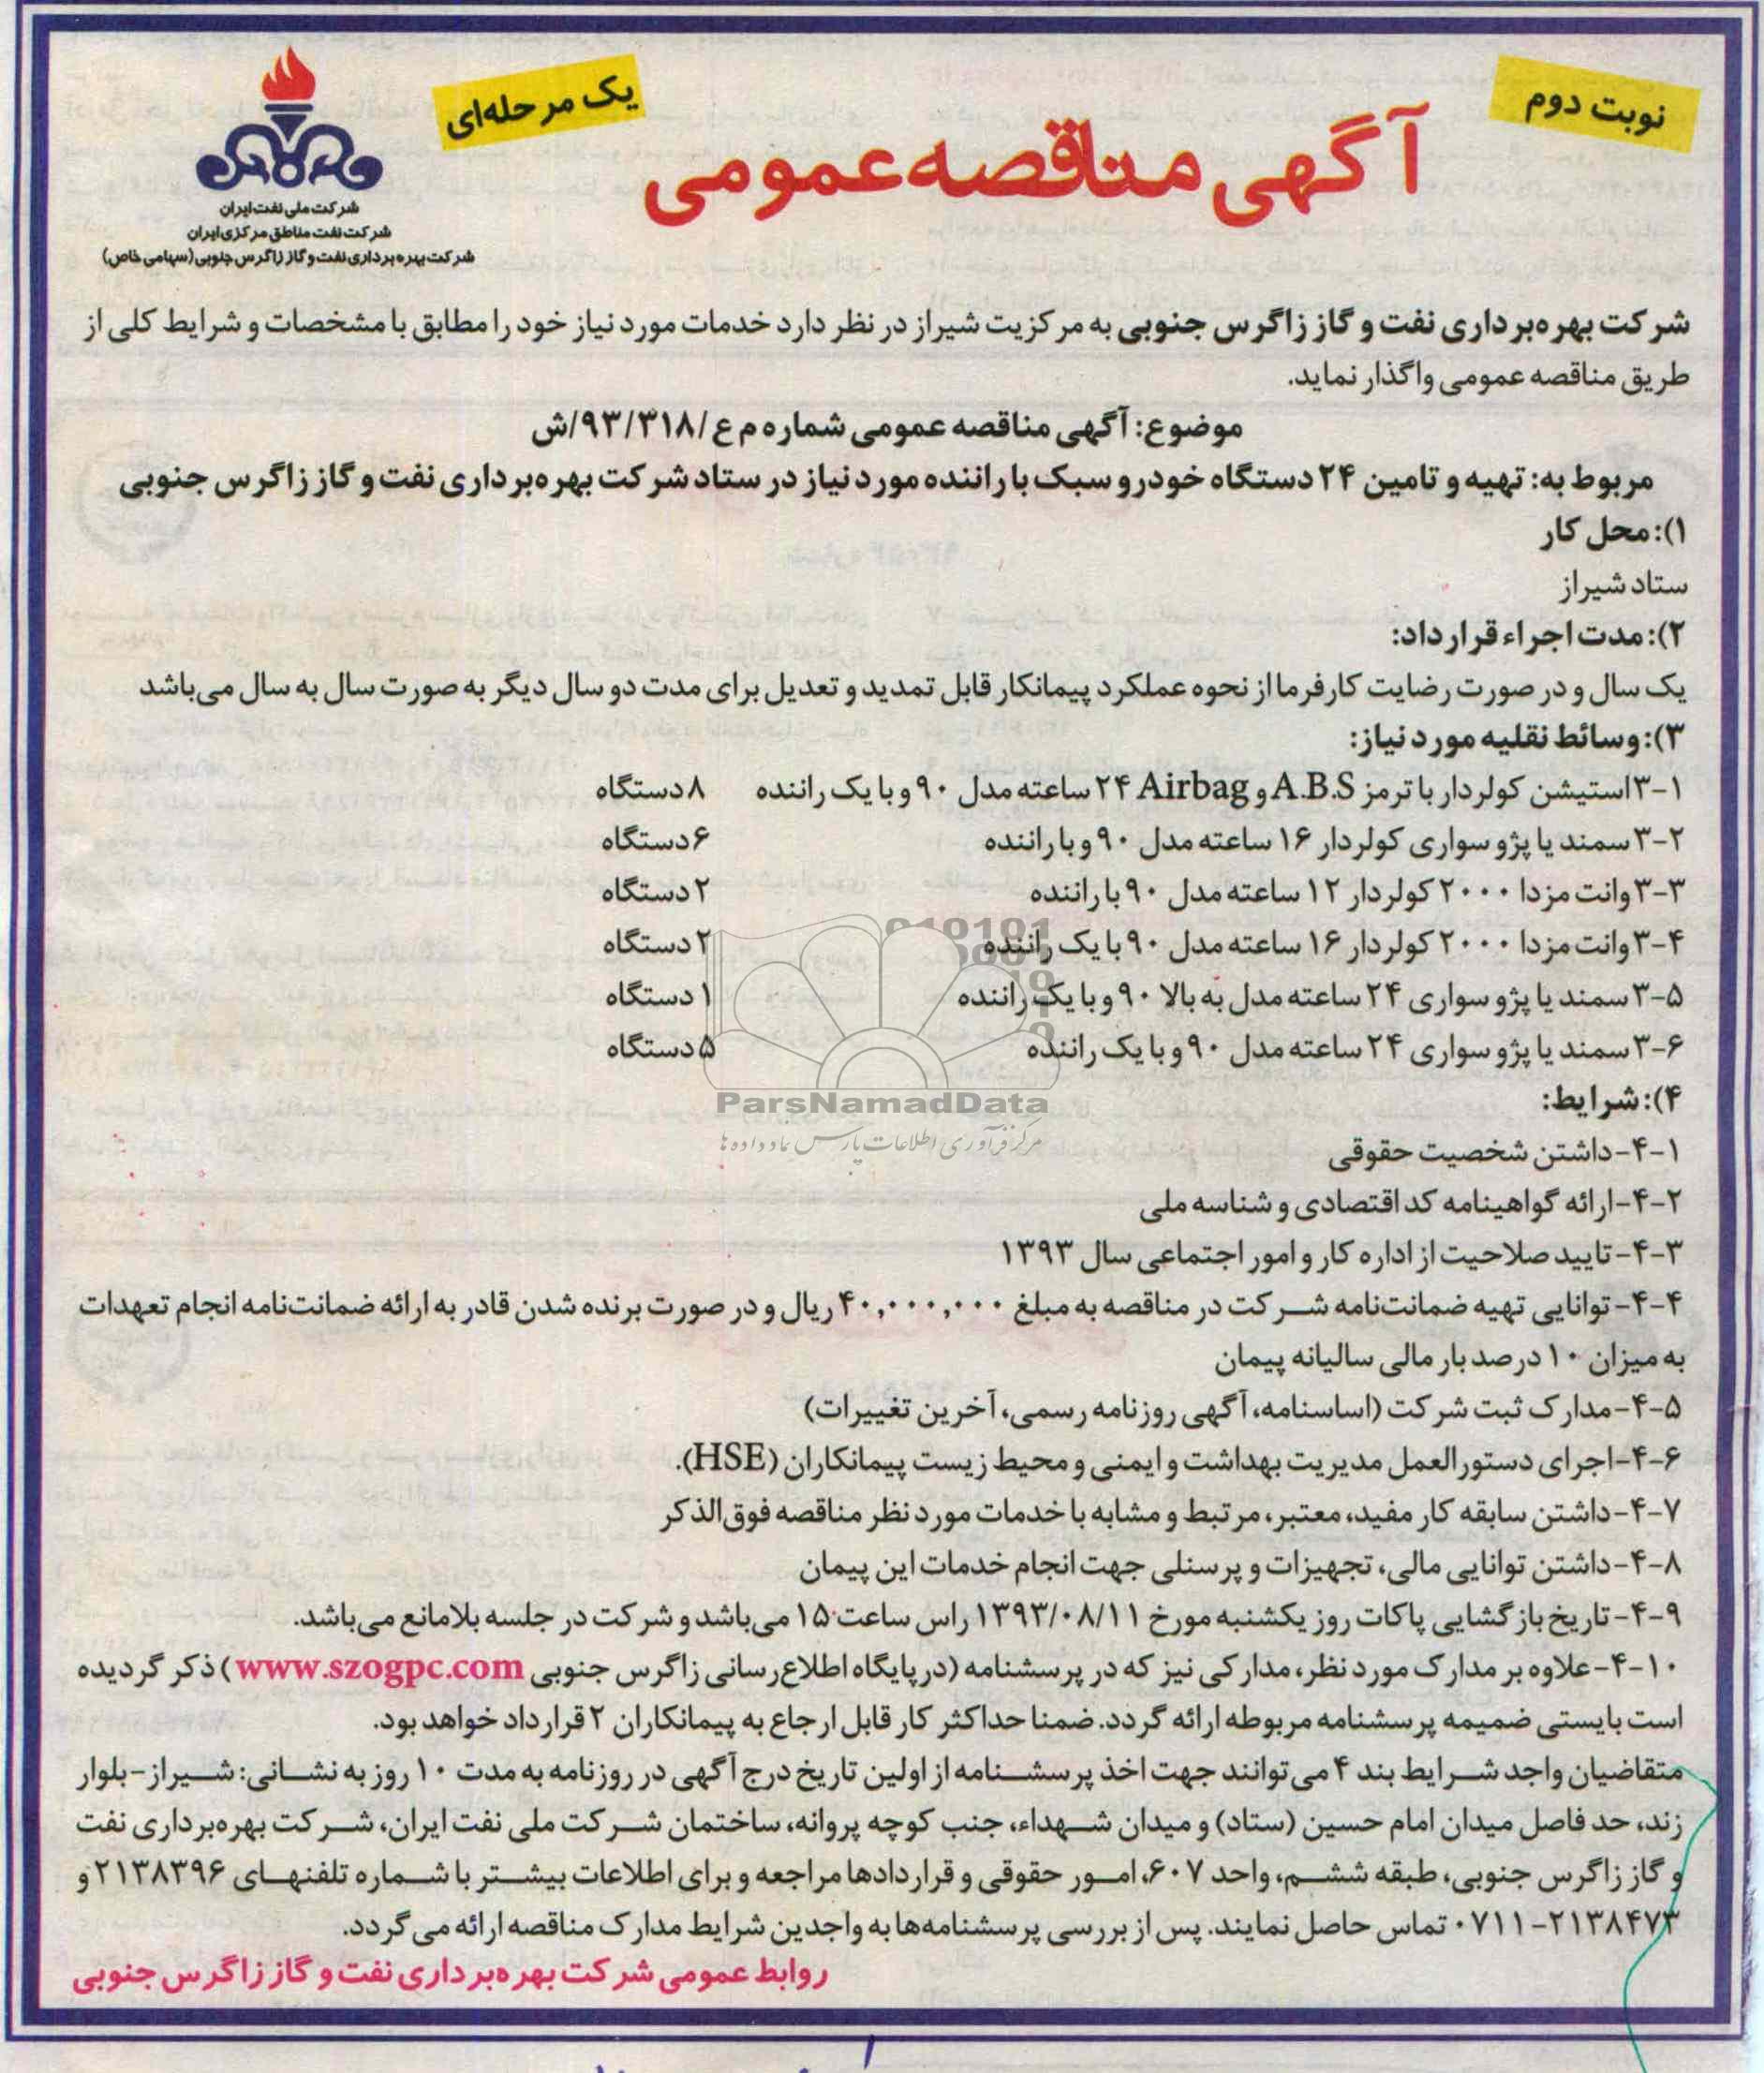 نوبت دوم
یک مرحله‌ای
آگهی مناقصه عمومی
شرکت ملی نفت ایران
شرکت نفت مناطق مرکزی ایران
شرکت بهره‌برداری نفت و گاز زاگرس جنوبی (سهامی خاص)
شرکت بهره‌برداری نفت و گاز زاگرس جنوبی به مرکزیت شیراز در نظر دارد خدمات مورد نیاز خود را مطابق با مشخصات و شرایط کلی از
طریق مناقصه عمومی واگذار نماید.
موضوع: آگهی مناقصه عمومی شماره م ع/۹۳/۳۱۸/ش
مربوط به: تهیه و تامین ۲۴ دستگاه خودرو سبک با راننده مورد نیاز در ستاد شرکت بهره‌برداری نفت و گاز زاگرس جنوبی
۱): محل کار
ستاد شیراز
۲): مدت اجراء قرارداد:
یک سال و در صورت رضایت کارفرما از نحوه عملکرد پیمانکار قابل تمدید و تعدیل برای مدت دو سال دیگر به صورت سال به سال می‌باشد
۳): وسائط نقلیه مورد نیاز:
۳-۱ استیشن کولردار با ترمز A.B.S و Airbag ۲۴ ساعته مدل ۹۰ و با یک راننده ۸ دستگاه
۳-۲ سمند یا پژو سواری کولردار ۱۶ ساعته مدل ۹۰ و با راننده ۶ دستگاه
۳-۳ وانت مزدا ۲۰۰۰ کولردار ۱۲ ساعته مدل ۹۰ با راننده ۲ دستگاه
۳-۴ وانت مزدا ۲۰۰۰ کولردار ۱۶ ساعته مدل ۹۰ با یک راننده ۲ دستگاه
۳-۵ سمند یا پژو سواری ۲۴ ساعته مدل به بالا ۹۰ و با یک راننده ۱ دستگاه
۳-۶ سمند یا پژو سواری ۲۴ ساعته مدل ۹۰ و با یک راننده ۵ دستگاه
ParsNamadData
مرکز فرآوری اطلاعات پارس نماد داده ها
۴): شرایط:
۴-۱-داشتن شخصیت حقوقی
۴-۲-ارائه گواهینامه کد اقتصادی و شناسه ملی
۴-۳-تایید صلاحیت از اداره کار و امور اجتماعی سال ۱۳۹۳
۴-۴-توانایی تهیه ضمانت‌نامه شرکت در مناقصه به مبلغ ۴۰,۰۰۰,۰۰۰ ریال و در صورت برنده شدن قادر به ارائه ضمانت‌نامه انجام تعهدات
به میزان ۱۰ درصد بار مالی سالیانه پیمان
۴-۵-مدارک ثبت شرکت (اساسنامه، آگهی روزنامه رسمی، آخرین تغییرات)
۴-۶-اجرای دستورالعمل مدیریت بهداشت و ایمنی و محیط زیست پیمانکاران (HSE).
۴-۷-داشتن سابقه کار مفید، معتبر، مرتبط و مشابه با خدمات مورد نظر مناقصه فوق‌الذکر
۴-۸-داشتن توانایی مالی، تجهیزات و پرسنلی جهت انجام خدمات این پیمان
۴-۹-تاریخ بازگشایی پاکات روز یکشنبه مورخ ۱۳۹۳/۰۸/۱۱ راس ساعت ۱۵ می‌باشد و شرکت در جلسه بلامانع می‌باشد.
۴-۱۰-علاوه بر مدارک مورد نظر، مدارکی نیز که در پرسشنامه (در پایگاه اطلاع‌رسانی زاگرس جنوبی www.szogpc.com) ذکر گردیده
است بایستی ضمیمه پرسشنامه مربوطه ارائه گردد. ضمنا حداکثر کار قابل ارجاع به پیمانکاران ۲ قرارداد خواهد بود.
متقاضیان واجد شرایط بند ۴ می‌توانند جهت اخذ پرسشنامه از اولین تاریخ درج آگهی در روزنامه به مدت ۱۰ روز به نشانی: شیراز-بلوار
زند، حد فاصل میدان امام حسین (ستاد) و میدان شهداء، جنب کوچه پروانه، ساختمان شرکت ملی نفت ایران، شرکت بهره‌برداری نفت
و گاز زاگرس جنوبی، طبقه ششم، واحد ۶۰۷، امور حقوقی و قراردادها مراجعه و برای اطلاعات بیشتر با شماره تلفنهای ۲۱۳۸۳۹۶ و
۰۷۱۱-۲۱۳۸۴۷۳ تماس حاصل نمایند. پس از بررسی پرسشنامه‌ها به واجدین شرایط مدارک مناقصه ارائه می‌گردد.
روابط عمومی شرکت بهره‌برداری نفت و گاز زاگرس جنوبی